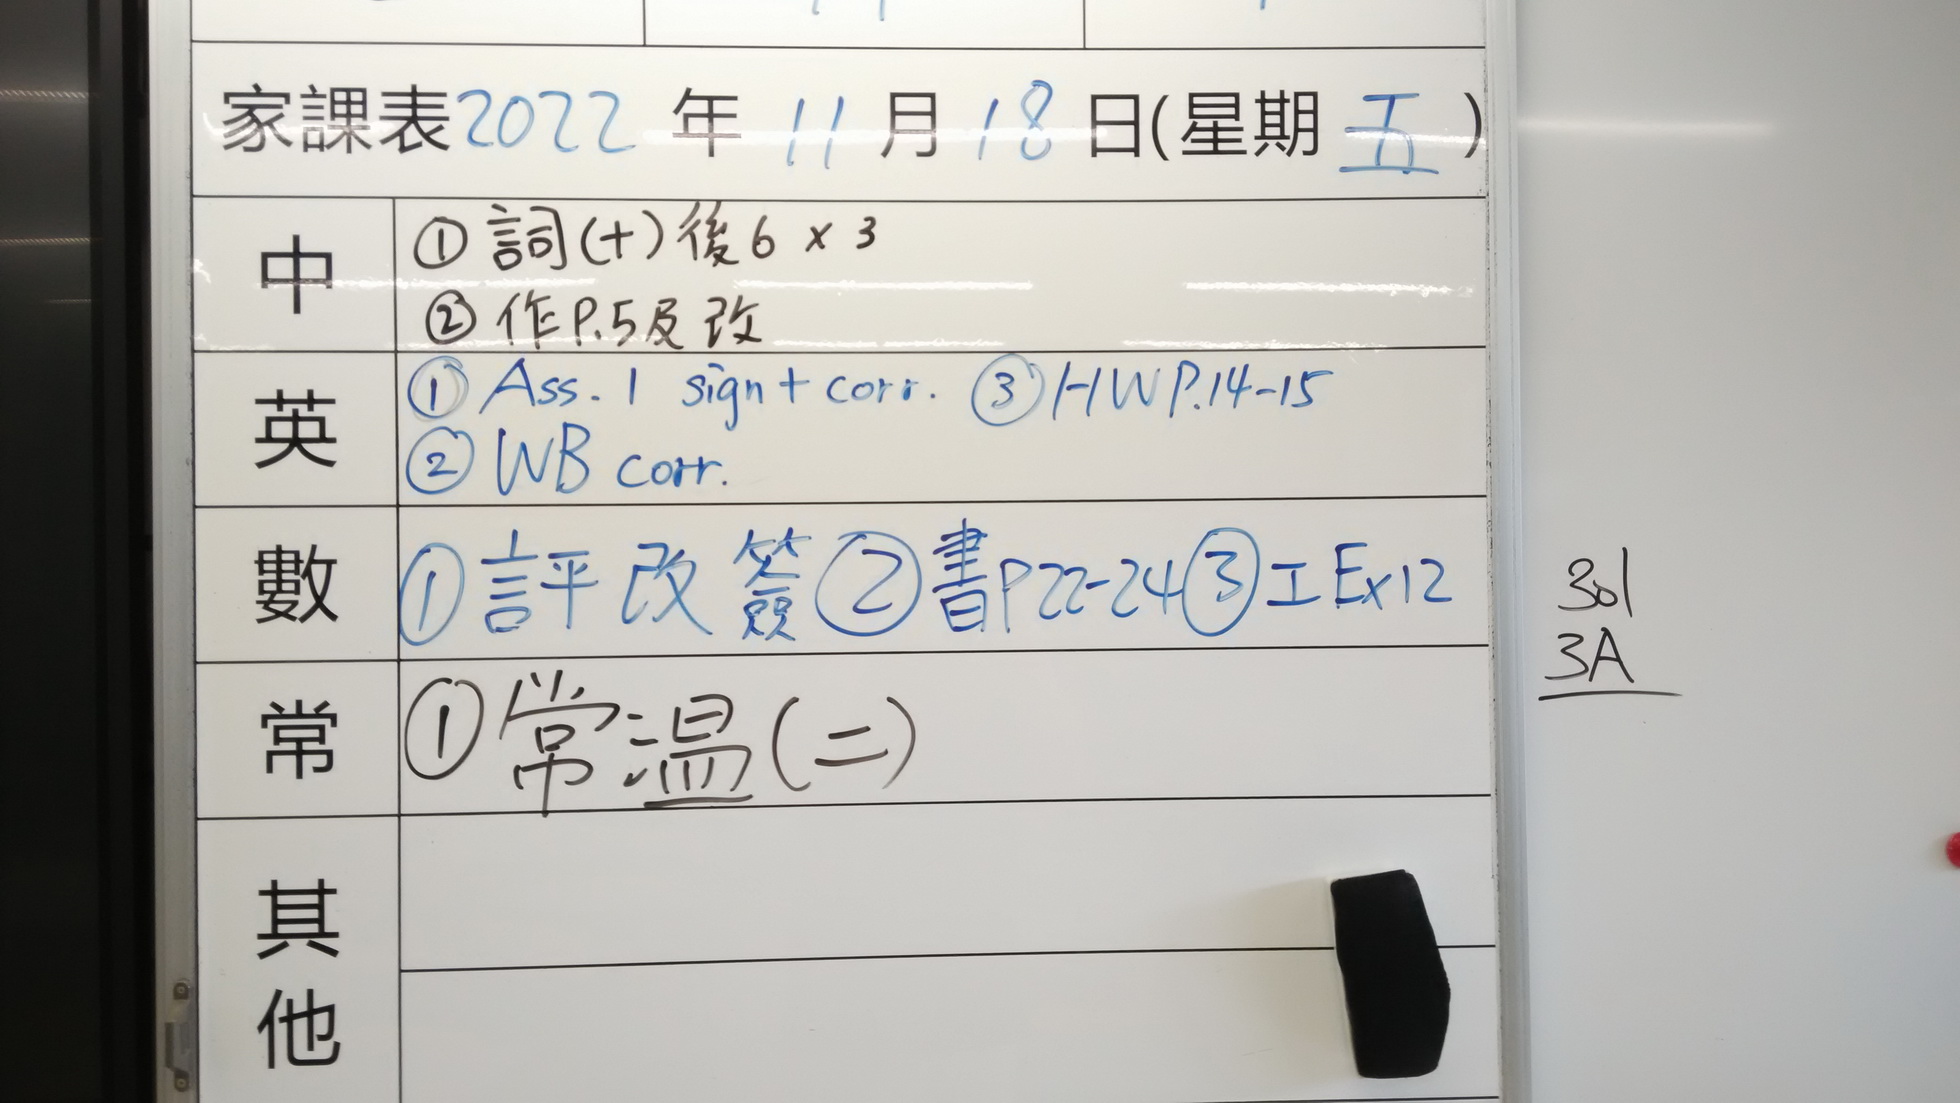 家課表2022 年 11 月 18 日(星期 五 )
中
① 詞(十)後6 x 3
② 作P.5及改
英
① Ass. 1 sign + corr. ③ HW P.14-15
② WB corr.
數
① 評改簽 ② 書P22-24 ③ 工 Ex12
常
① 常温(二)
其他
301
3A